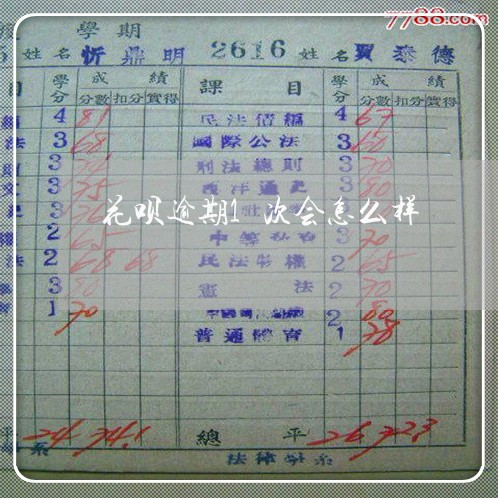 7788.com
學期
姓名 忻鼎明 2616 姓名 賈泰德
目 學分 成績 課目 學分 成績
分數 扣分 實得 分數 扣分 實得
4 81 民法債編 4 67
法 3 68 國際公法 3 60
3 刑法總則 3 70
文 3 75 西洋通史 3 80
花呗逾期1 次会怎么样
2 65 3 70
法 2 68 68 民法物權 2 65
3 80 憲法 2 70
1 70 2 80
普通體育 1 78
平 24 74.1 總平 26 72.3
系 法律學系